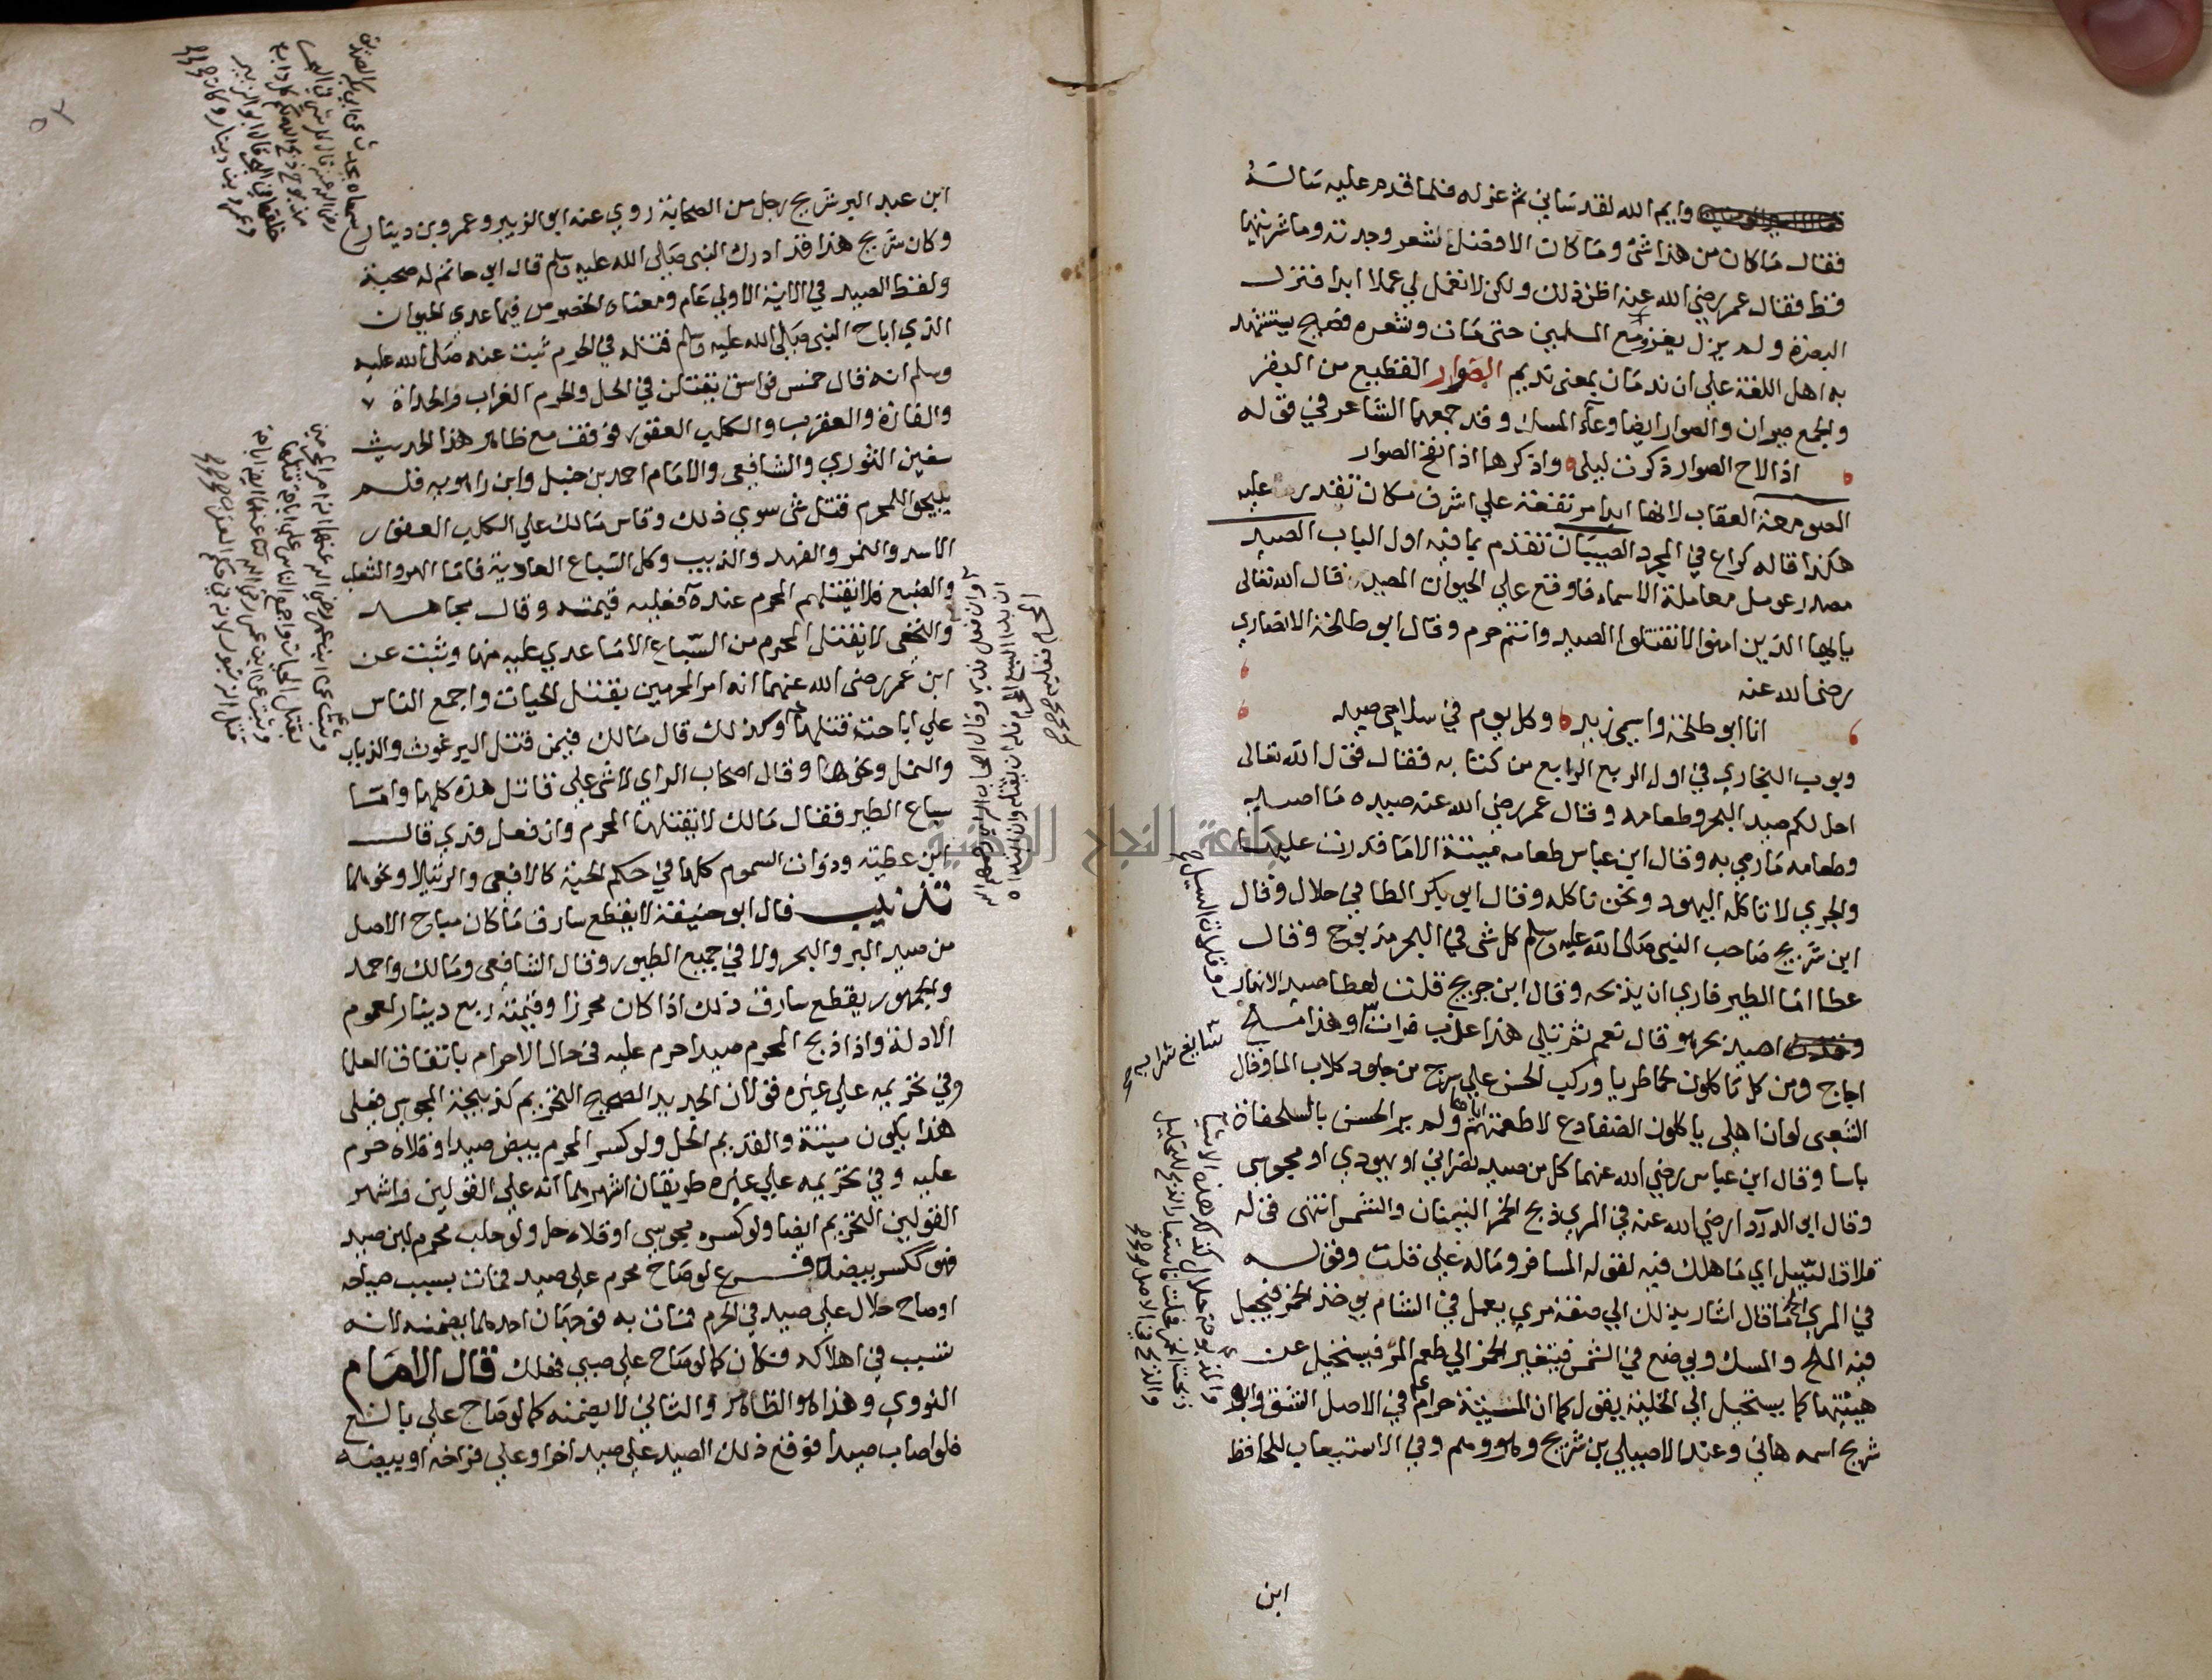 وايم الله لقد ساني ثم عزله فلما قدم عليه ساله
فقال ما كان من هذا شئ وما كان الا فضل شعر وجدته وما شربتها
قط فقال عمر رضي الله عنه اظن ذلك ولكن لا تعمل لي عملا ابدا فنزل
البصرة ولم يزل يغزو مع المسلمين حتى مات وشعره فصيح يستشهد
به اهل اللغة علي ان ندمان بمعنى نديم الصوار القطيع من البقر
والجمع صيران والصوار ايضا وعاء المسك وقد جمعهما الشاعر في قوله
اذا لاح الصوار ذكرت ليلى واذكرها اذا نفخ الصوار
الصومعة العقاب لانها ابدا مرتفعة علي اشرف مكان تقدر عليه
هكذا قاله كراع في المجرد الصيبان تقدم بما فيه اول الباب الصيد
مصدر عومل معاملة الاسماء فاوقع علي الحيوان المصيد قال الله تعالى
يا ايها الذين امنوا لا تقتلوا الصيد وانتم حرم وقال ابو طلحة الانصاري
رضي الله عنه
انا ابو طلحة واسمي زيد وكل يوم في سلاحي صيد
وبوب البخاري في اول الربع الرابع من كتابه فقال قول الله تعالى
احل لكم صيد البحر وطعامه وقال عمر رضي الله عنه صيده ما اصطيد
وطعامه ما رمي به وقال ابن عباس طعامه ميتته الا ما قذرت عليها
والجري لا تاكله اليهود ونحن ناكله وقال ابو بكر الطافي حلال وقال
ابن شريح صاحب النبي صلى الله عليه وسلم كل شى في البحر مذبوح وقال
عطا اما الطير فاري ان يذبحه وقال ابن جريج قلت لعطا صيد الانهار
وقلات السيل
اصيد بحر هو قال نعم ثم تلى هذا عذب فرات وهذا ملح
سايغ شرابه
اجاج ومن كل تاكلون لحما طريا وركب الحسن علي سرج من جلود كلاب الما وقال
الشعبي لو ان اهلي ياكلون الضفادع لاطعمتهم اياها ولم ير الحسن بالسلحفاة
باسا وقال ابن عباس رضي الله عنهما كل من صيد نصراني او يهودي او مجوسي
وقال ابو الدرداء رضي الله عنه في المري ذبح الخمر النينان والشمس انتهى قوله
قلات السيل اي ما هلك فيه لقوله المسافر وماله علي قلت وقوله
في المري الخ ما قال اشار بذلك الي صفة مري يعمل في الشام يوخذ الخمر فيجعل
فيه الملح والسمك ويوضع في الشمس فيتغير الخمر الي طعم المر فيستحيل عن
هيئتها كما يستحيل الي الخلية يقول كما ان الميتة حرام
والمذبوحة حلال كذلك هذه الاشيا
ذبحت الخمر فحلت فاستعار الذبح للتحليل
والذبح في الاصل
في الاصل الشق وابو
شريح اسمه هاني وعند الاصيلي بن شريح وهو وهم وفي الاستيعاب للحافظ
ابن
٥٢
ابن عبد البر شريح رجل من الصحابة روي عنه ابو الزبير وعمرو بن دينار
سمعاه يحدث عن ابي بكر الصديق
رضي الله عنه قال كل شى في البحر
مذبوح ذبح الله لكم كل دابة
خلقها في البحر قال ابو الزبير
وعمرو بن دينار وكان
وكان شريح هذا قد ادرك النبي صلى الله عليه وسلم قال ابو حاتم له صحبة
ولفظ الصيد في الاية الاولي عام ومعناه الخصوص فيما عدي الحيوان
الذي اباح النبي صلى الله عليه وسلم قتله في الحرم ثبت عنه صلى الله عليه
وسلم انه قال خمس فواسق يقتلن في الحل والحرم الغراب والحداة
والفارة والعقرب والكلب العقور فوقف مع ظاهر هذا الحديث
سفين الثوري والشافعي والامام احمد بن حنبل وابن راهويه فلم
يبيحوا للمحرم قتل شى سوي ذلك وقاس مالك علي الكلب العقور
الاسد والنمر والفهد والذيب وكل السباع العادية فاما الهر والثعلب
والضبع فلا يقتلهم المحرم عنده
وان فعل فدي وقال اصحاب الراي
ان بدا السبع المحرم فله ان يقتله وان ابتداه
المحرم فعليه
فعليه قيمته وقال مجاهد
والنخعي لا يقتل المحرم من السباع الا ما عدي عليه منها وثبت عن
ابن عمر رضي الله عنهما انه امر المحرمين بقتل الحيات واجمع الناس
علي اباحة قتلها
وثبت عن ابن عمر رضي الله عنهما انه امر المحرمين
بقتل الحيات واجمع الناس علي اباحة قتلها
قتل الزنبور لانه في حكم العقرب
وكذلك قال مالك فيمن قتل البرغوث والذباب
والنمل ونحوها وقال اصحاب الراي لا شى علي قاتل هذه كلها واما
سباع الطير فقال مالك لا يقتلها المحرم وان فعل فدي قال
ابن عطية وذوات السموم كلها في حكم الحية كالافعي والرتيلا ونحوهما
تذنيب قال ابو حنيفة لا يقطع سارق ما كان مباح الاصل
من صيد البر والبحر ولا في جميع الطيور وقال الشافعي ومالك واحمد
والجمهور يقطع سارق ذلك اذا كان محرزا وقيمته ربع دينار لعموم
الادلة واذا ذبح المحرم صيدا حرم عليه في حال الاحرام باتفاق العلما
وفي تحريمه علي غيره قولان الجديد الصحيح التحريم كذبيحة المجوسي فعلى
هذا يكون ميتة والقديم الحل ولو كسر المحرم بيض صيد او قلاه حرم
عليه وفي تحريمه علي غيره طريقان اشهرهما انه علي القولين واشهر
القولين التحريم ايضا ولو كسره مجوسي او قلاه حل ولو حلب محرم لبن صيد
فهو ككسر بيضه فرع لو صاح محرم علي صيد فمات بسبب صياحه
او صاح حلال علي صيد في الحرم فمات به فوجهان احدهما يضمنه لانه
تسبب في اهلاكه فكان كما لو صاح علي صبي فهلك قال الامام
النووي وهذا هو الظاهر والثاني لا يضمنه كما لو صاح علي بالغ
فلو اصاب صيدا فوقع ذلك الصيد علي صيد اخر او علي فراخه او بيضه
جامعة النجاح الوطنية